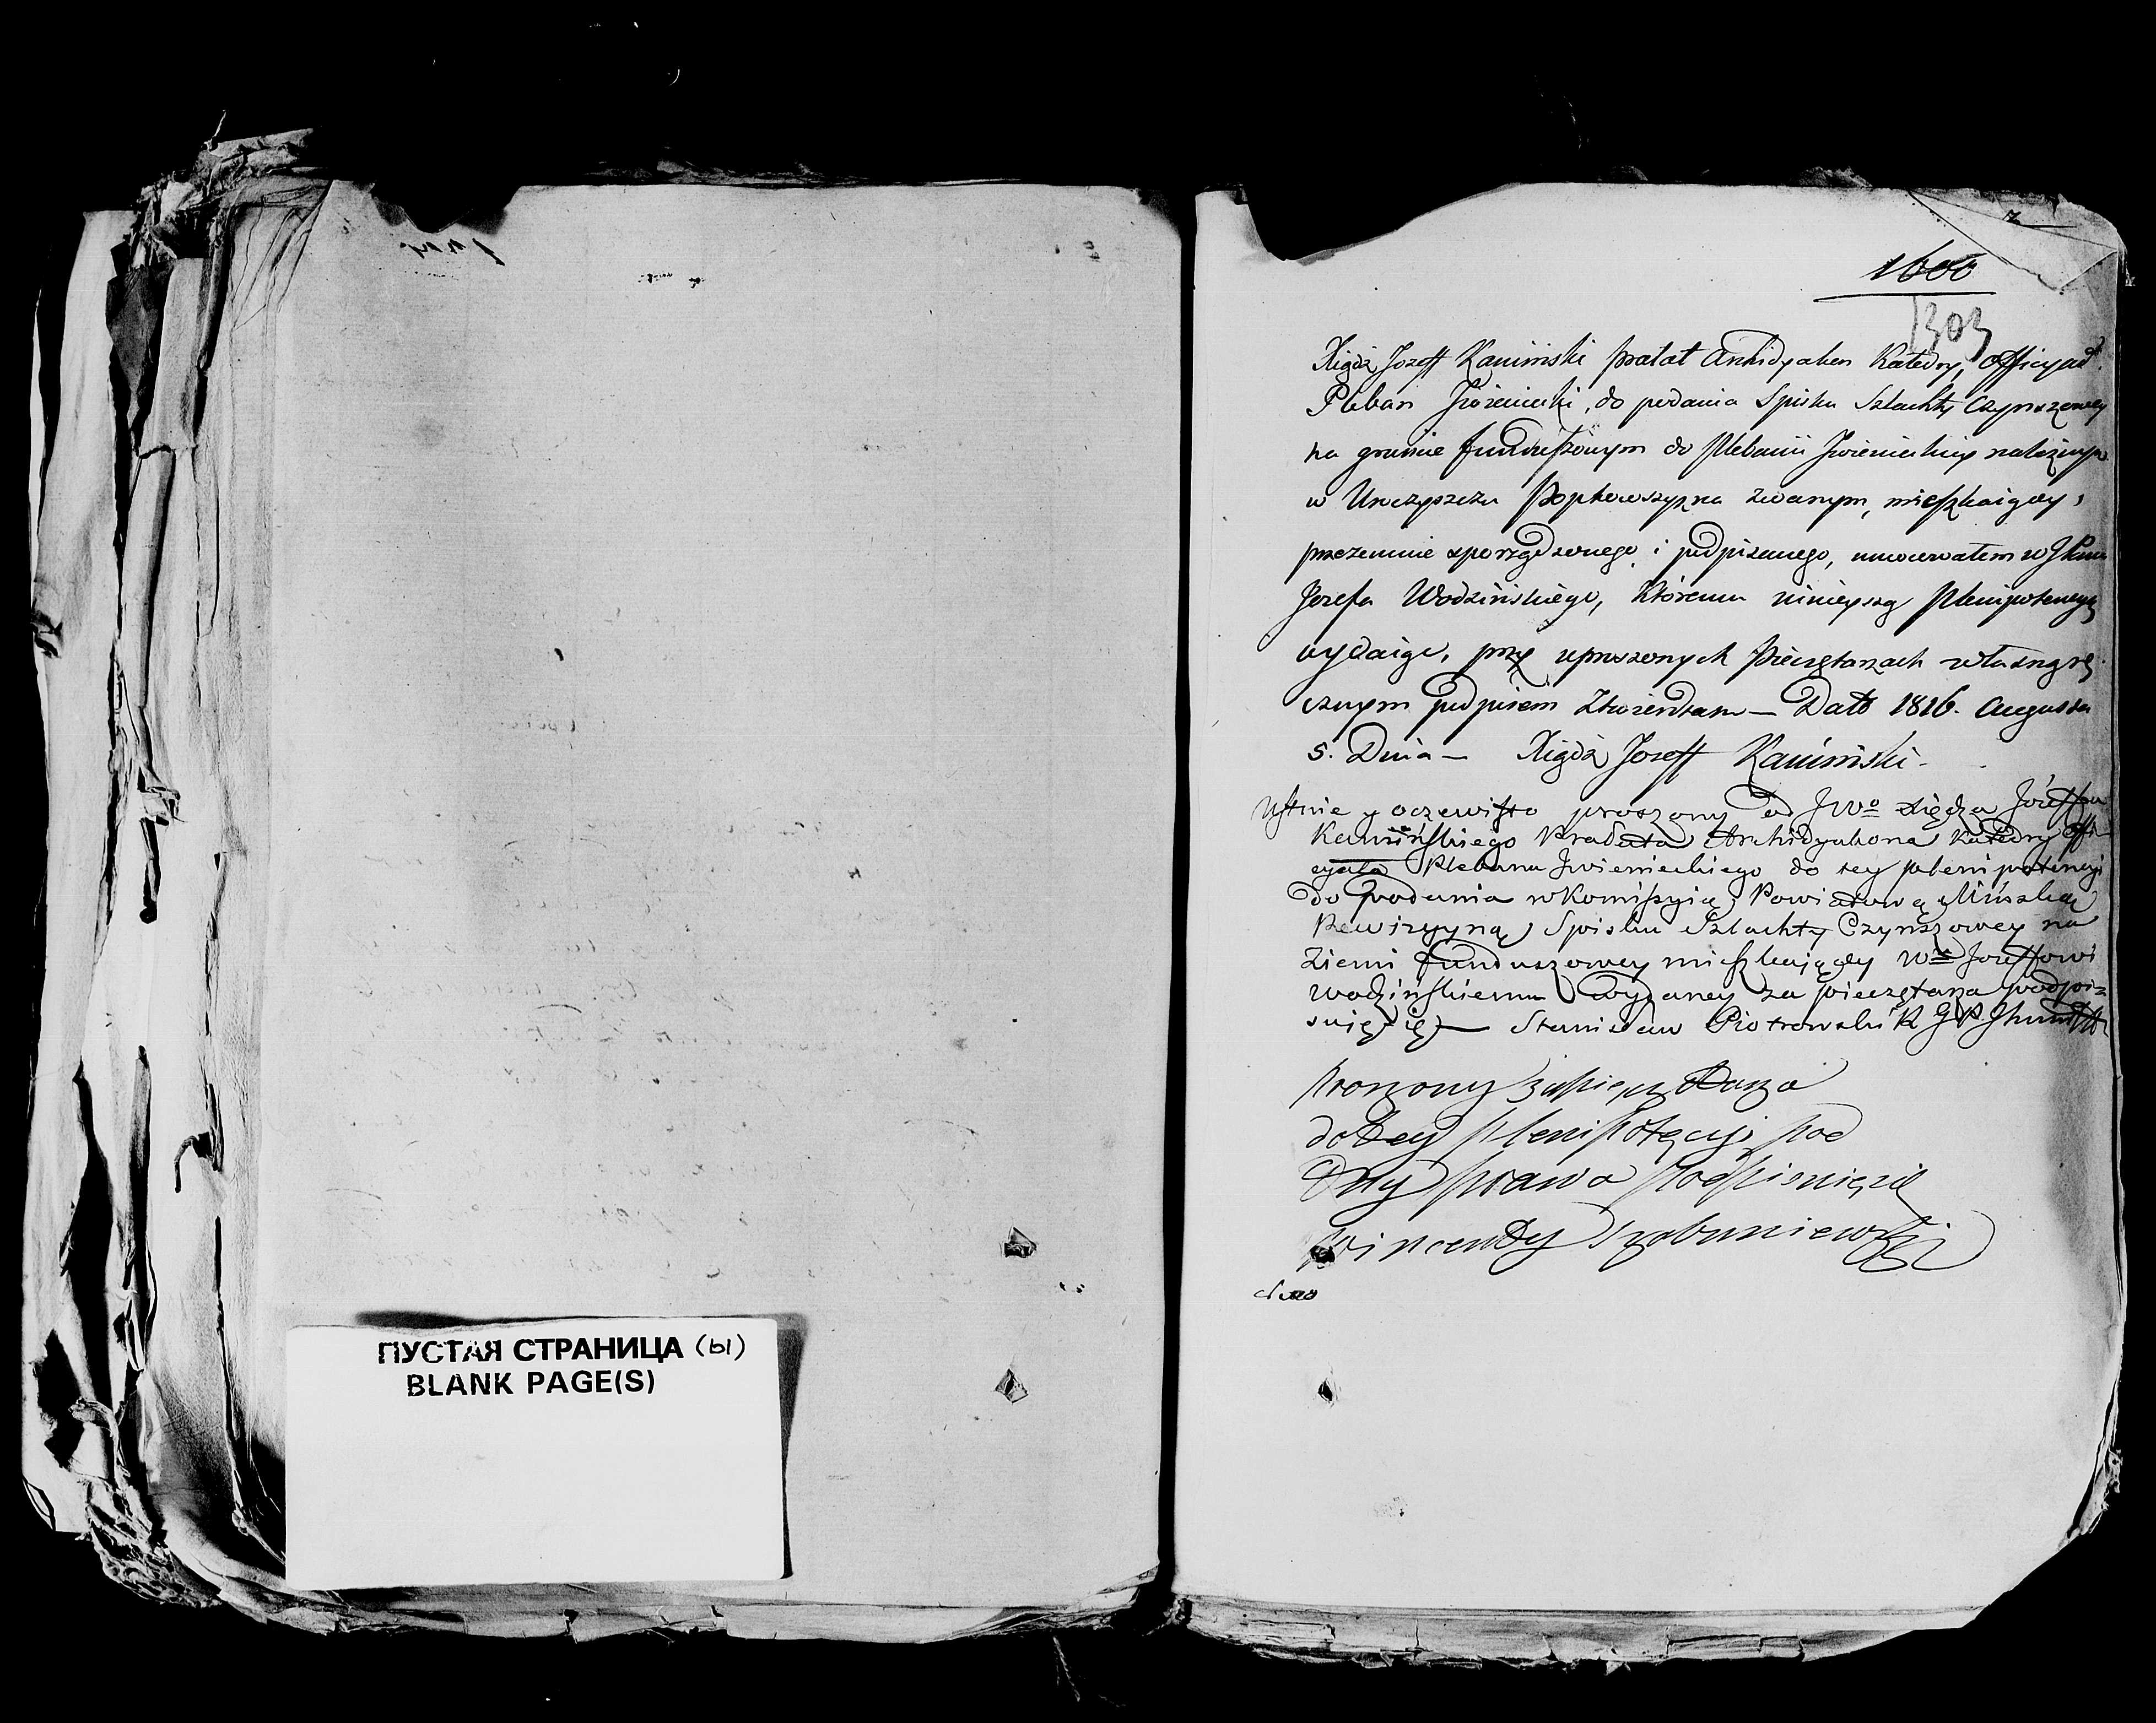 ПУСТАЯ СТРАНИЦА (ы)
BLANK PAGE(S)
2
1600
1303
Xiądz Jozeff Kamiński prałat Archidyakon Katedry, Officyał
Pleban Iwieniecki, do podania Spisku Szlachty Czynszowey
na gruncie funduszowym do Plebanii Iwienieckiey należnym
w Uroczyszczu Popkowszyzna zwanym, mieszkaiącey,
przezemnie sporządzonego i podpisanego, umocowałem WJPana
Jozefa Wodzińskiego, któremu ninieyszą plenipotencyą
wydaiąc, przy uproszonych Pieczętarzach własnorę
cznym podpisem ztwierdzam — Dato 1816. Augusta
5. Dnia — Xiądz Jozeff Kamiński.
Ustnie y oczewisto proszony od JWo Xiędza Józeffa
Kamińskiego Prałata Archidyakona Katedry Offi
cyała Plebana Iwienieckiego do tey plenipotencyi
do podania w Komissyią Powiatową Mińską
Rewizyyną Spisku Szlachty Czynszowey na
Ziemi funduszowey mieszkaiącey Wu Jozeffowi
Wodzińskiemu wydaney za pieczętarza podpi=
suię się — Stanisław Piotrowski R G P
Proszony za pieczętarza
do tey plenipotęcyi pod
ług prawa podpisuię się
Wincenty